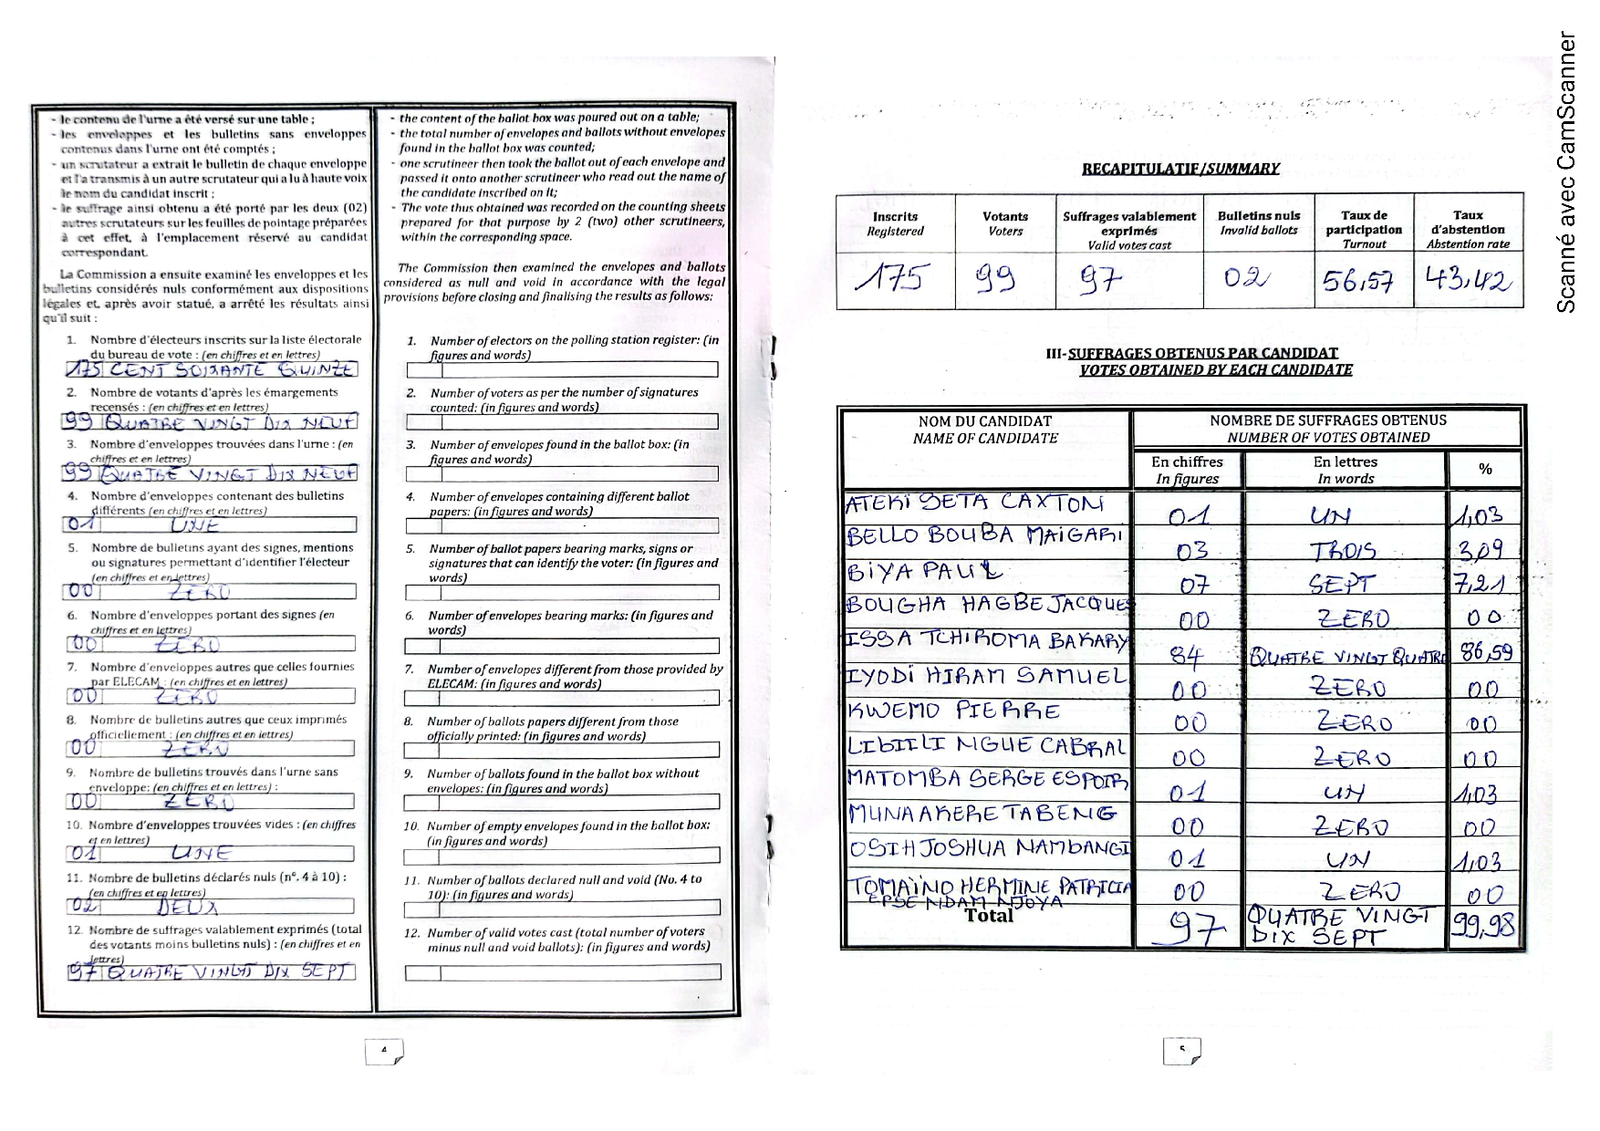 - le contenu de l'urne a été versé sur une table ;
- les enveloppes et les bulletins sans enveloppes
contenus dans l'urne ont été comptés ;
- un scrutateur a extrait le bulletin de chaque enveloppe
et l'a transmis à un autre scrutateur qui a lu à haute voix
le nom du candidat inscrit ;
- le suffrage ainsi obtenu a été porté par les deux (02)
autres scrutateurs sur les feuilles de pointage préparées
à cet effet, à l'emplacement réservé au candidat
correspondant.
La Commission a ensuite examiné les enveloppes et les
bulletins considérés nuls conformément aux dispositions
légales et, après avoir statué, a arrêté les résultats ainsi
qu'il suit :
1. Nombre d'électeurs inscrits sur la liste électorale
du bureau de vote : (en chiffres et en lettres)
175 CENT SOIXANTE QUINZE
2. Nombre de votants d'après les émargements
recensés : (en chiffres et en lettres)
99 QUATRE VINGT DIX NEUF
3. Nombre d'enveloppes trouvées dans l'urne : (en
chiffres et en lettres)
99 QUATRE VINGT DIX NEUF
4. Nombre d'enveloppes contenant des bulletins
différents (en chiffres et en lettres)
01 UNE
5. Nombre de bulletins ayant des signes, mentions
ou signatures permettant d'identifier l'électeur
(en chiffres et en lettres)
00 ZERO
6. Nombre d'enveloppes portant des signes (en
chiffres et en lettres)
00 ZERO
7. Nombre d'enveloppes autres que celles fournies
par ELECAM : (en chiffres et en lettres)
00 ZERO
8. Nombre de bulletins autres que ceux imprimés
officiellement : (en chiffres et en lettres)
00 ZERO
9. Nombre de bulletins trouvés dans l'urne sans
enveloppe: (en chiffres et en lettres) :
00 ZERO
10. Nombre d'enveloppes trouvées vides : (en chiffres
et en lettres)
01 UNE
11. Nombre de bulletins déclarés nuls (n°. 4 à 10) :
(en chiffres et en lettres)
02 DEUX
12. Nombre de suffrages valablement exprimés (total
des votants moins bulletins nuls) : (en chiffres et en
lettres)
97 QUATRE VINGT DIX SEPT
- the content of the ballot box was poured out on a table;
- the total number of envelopes and ballots without envelopes
found in the ballot box was counted;
- one scrutineer then took the ballot out of each envelope and
passed it onto another scrutineer who read out the name of
the candidate inscribed on it;
- The vote thus obtained was recorded on the counting sheets
prepared for that purpose by 2 (two) other scrutineers,
within the corresponding space.
The Commission then examined the envelopes and ballots
considered as null and void in accordance with the legal
provisions before closing and finalising the results as follows:
1. Number of electors on the polling station register: (in
figures and words)
2. Number of voters as per the number of signatures
counted: (in figures and words)
3. Number of envelopes found in the ballot box: (in
figures and words)
4. Number of envelopes containing different ballot
papers: (in figures and words)
5. Number of ballot papers bearing marks, signs or
signatures that can identify the voter: (in figures and
words)
6. Number of envelopes bearing marks: (in figures and
words)
7. Number of envelopes different from those provided by
ELECAM: (in figures and words)
8. Number of ballots papers different from those
officially printed: (in figures and words)
9. Number of ballots found in the ballot box without
envelopes: (in figures and words)
10. Number of empty envelopes found in the ballot box:
(in figures and words)
11. Number of ballots declared null and void (No. 4 to
10): (in figures and words)
12. Number of valid votes cast (total number of voters
minus null and void ballots): (in figures and words)
4
RECAPITULATIF/SUMMARY
Inscrits Votants Suffrages valablement Bulletins nuls Taux de Taux
Registered Voters exprimés Invalid ballots participation d'abstention
Valid votes cast Turnout Abstention rate
175 99 97 02 56,57 43,42
III-SUFFRAGES OBTENUS PAR CANDIDAT
VOTES OBTAINED BY EACH CANDIDATE
NOM DU CANDIDAT NOMBRE DE SUFFRAGES OBTENUS
NAME OF CANDIDATE NUMBER OF VOTES OBTAINED
En chiffres En lettres %
In figures In words
ATEKI SETA CAXTON 01 UN 1,03
BELLO BOUBA MAIGARI 03 TROIS 3,09
BIYA PAUL 07 SEPT 7,21
BOUGHA HAGBE JACQUES 00 ZERO 00
ISSA TCHIROMA BAKARY 84 QUATRE VINGT QUATRE 86,59
IYODI HIRAM SAMUEL 00 ZERO 00
KWEMO PIERRE 00 ZERO 00
LIBIILI NGUE CABRAL 00 ZERO 00
MATOMBA SERGE ESPOIR 01 UN 1,03
MUNA AKERE TABENG 00 ZERO 00
OSIH JOSHUA NAMBANGI 01 UN 1,03
TOMAÏNO HERMINE PATRICIA 00 ZERO 00
EPSE NDAM NJOYA
Total 97 QUATRE VINGT DIX SEPT 99,98
5
Scanné avec CamScanner